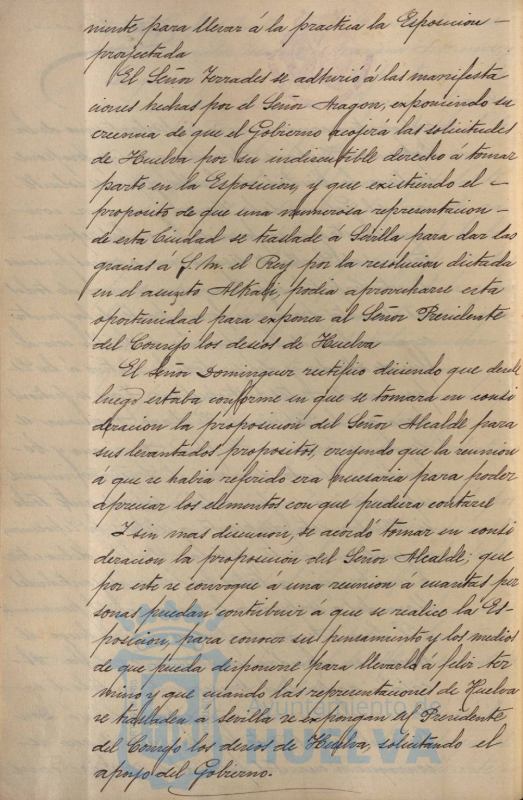 niente para llevar á la practica la Esposicion –
proyectada
El Señor Terrades se adhirió á las manifesta
ciones hechas por el Señor Aragon, exponiendo su
creencia de que el Gobierno acojerá las solicitudes
de Huelva por su indiscutible derecho á tomar
parte en la Esposicion, y que existiendo el –
proposito de que una numerosa representacion –
de esta Ciudad se traslade á Sevilla para dar las
gracias á S. M. el Rey por la resolucion dictada
en el asunto Alkali, podia aprovecharse esta
oportunidad para exponer al Señor Presidente
del Consejo los deseos de Huelva
El Señor Dominguez rectificó diciendo que desde
luego estaba conforme en que se tomara en consi
deracion la proposicion del Señor Alcalde para
sus levantados propositos, creyendo que la reunion
á que se habia referido era necesaria para poder
apreciar los elementos con que pudiera contarse
I sin mas discusion, se acordó tomar en consi
deracion la proposicion del Señor Alcalde; que
por este se convoque á una reunion á cuantas per
sonas puedan contribuir á que se realice la Es-
posicion, para conocer su pensamiento y los medios
de que pueda disponerse para llevarla á feliz ter
mino y que cuando las representaciones de Huelva
se trasladen a Sevilla se expongan al Presidente
del Consejo los deseos de Huelva, solicitando el
apoyo del Gobierno.
Ayuntamiento de
HUELVA